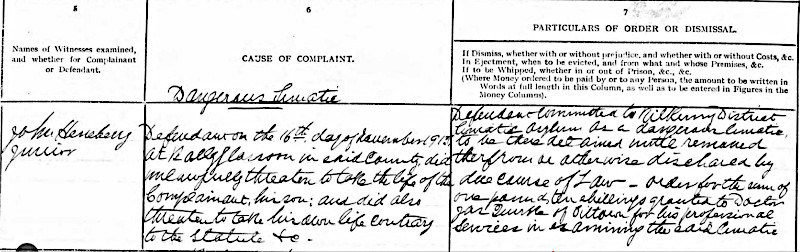 5
6
7
Names of Witnesses examined,
and whether for Complainant
or Defendant.
CAUSE OF COMPLAINT.
PARTICULARS OF ORDER OR DISMISSAL.
If Dismiss, whether with or without prejudice, and whether with or without Costs, &c.
In Ejectment, when to be evicted, and from what and whose Premises, &c.
If to be Whipped, whether in or out of Prison, &c., &c.
(Where Money ordered to be paid by or to any Person, the amount to be written in
Words at full length in this Column, as well as to be entered in Figures in the
Money Columns).
John Heneberg
Junior
Dangerous Lunatic
Defendant on the 16th day of November 1913
at in said County did
unlawfully threaten to take the life of the
Complainant, his son; and did also
threaten to take his own life contrary
to the Statute &c.
Defendant Committed to Kilkenny District
Lunatic Asylum as a dangerous lunatic,
to be there detained until removed
therefrom or otherwise discharged by
due course of Law - order for the sum of
one pound, ten shillings granted to Doctor
Jas Quirke of Piltown for his professional
services in examining the said Lunatic